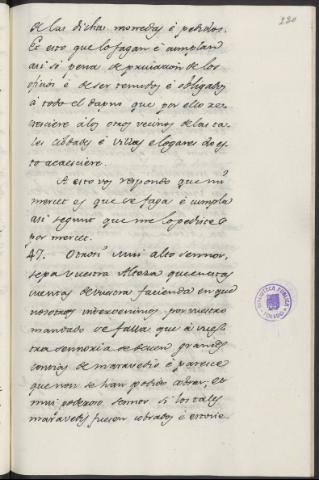 220
de las dichas monedas é pedidos.
Ec esto que lo fagan é cumplan
asi so pena de privacion de los
oficios é de ser tenudos é obligados
á todo el dapno que por ello re-
cresciere á los otros vecinos de las ta-
les cibdades é villas e logares do es-
to acaesciere.
A esto vos respondo que mi
merced es que se faga é cumpla
asi segunt que me lo pedistes
por merced.
47. Otrosi mui alto sennor,
sepa vuestra Alteza que en estas
cuentas de vuestra facienda en que
nosotros intervenimos por vuestro
mandado se falla que á vues-
tra sennoria se deben grandes
contias de maravedis é paresce
que non se han podido cobrar, ec
mui poderoso sennor si los tales
maravedis fuesen cobrados é estovie-
BIBLIOTECA PUBLICA
TOLEDO